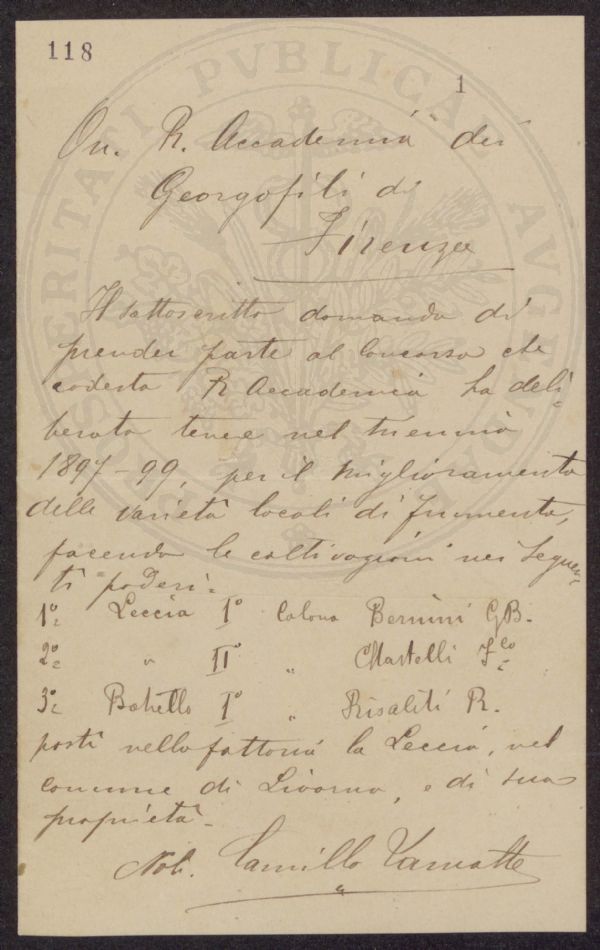 118
1
On. R. Accademia dei
Georgofili di
Firenze
Il sottoscritto domanda di
prender parte al Concorso che
codesta R Accademia ha deli=
berato tenere nel triennio
1897-99, per il miglioramento
delle varietà locali di frumento,
facendo le coltivazioni nei seguen=
ti poderi:
1º Leccia Iº Colono Bernini GB.
2º " IIº " Martelli F.co
3º Iº " Risaliti R.
posti nella fattoria la Leccia, nel
comune di Livorno, e di sua
proprietà.
Nob. Camillo
PROSPERITATI PVBLICAE AVGENDAE